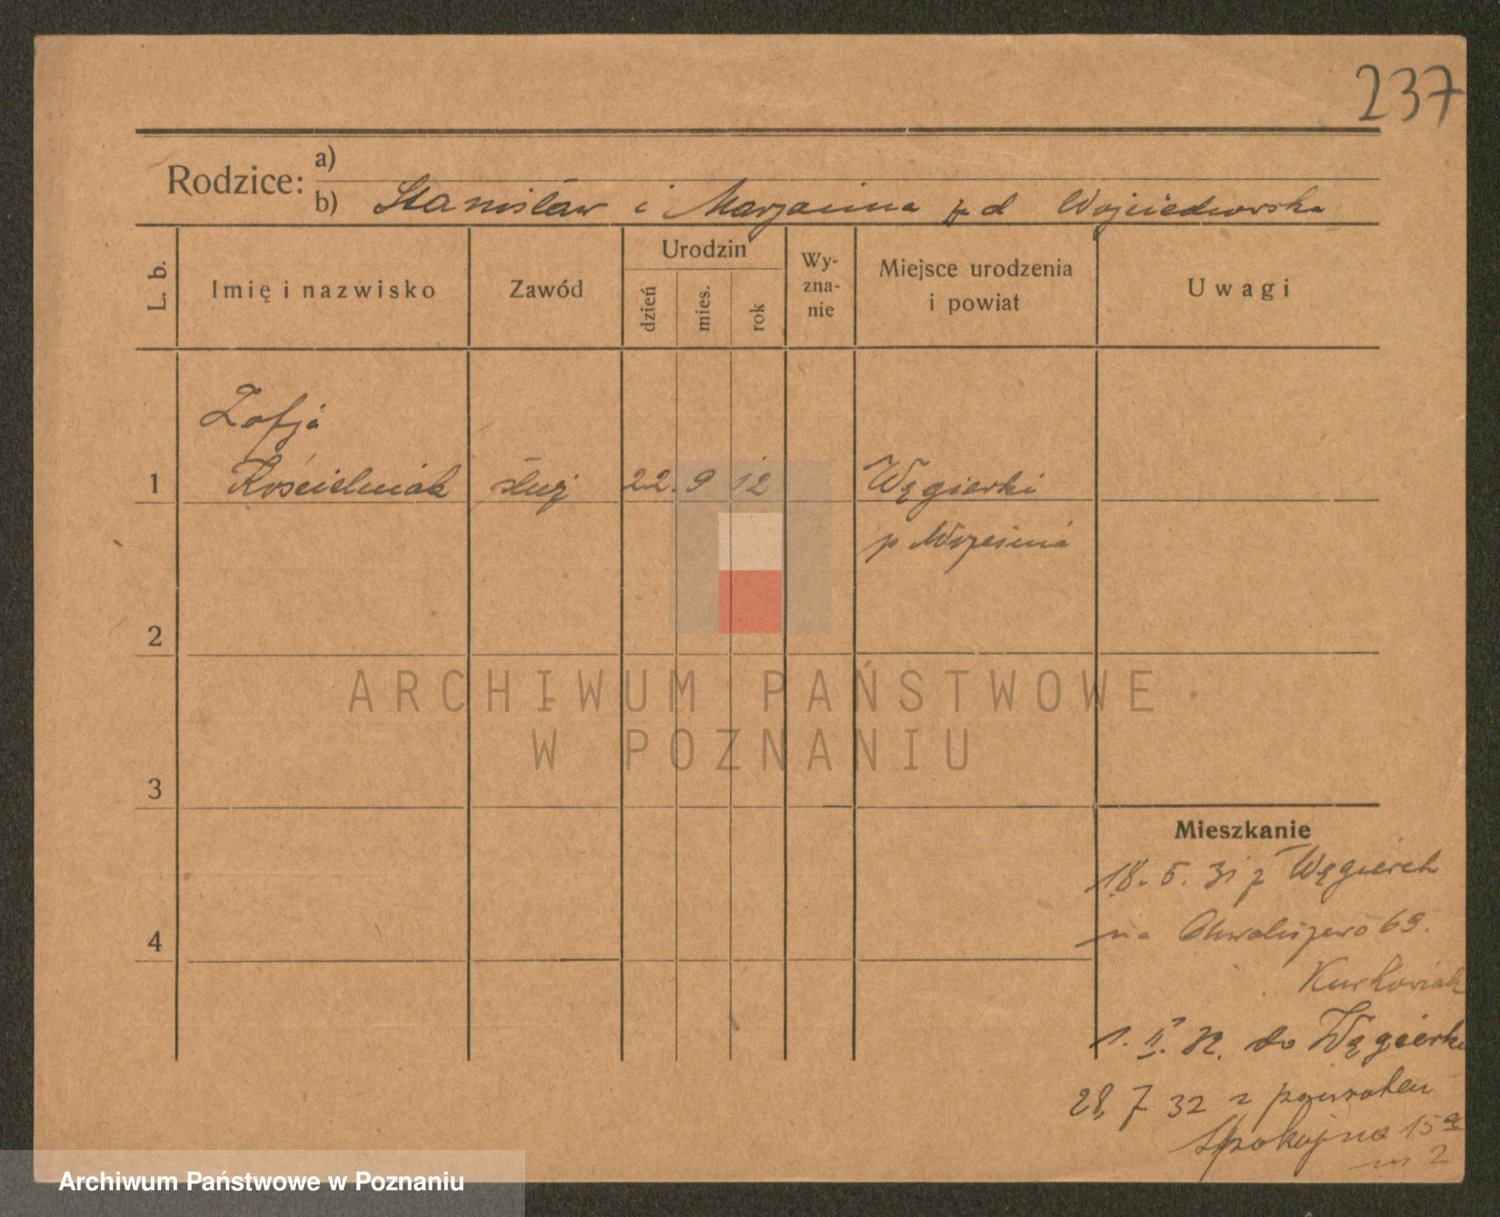 237
Rodzice: a)
b) Stanisław i Marjanna z d Wojciechowska
L. b.
Imię i nazwisko
Zawód
Urodzin
dzień
mies.
rok
Wy-
zna-
nie
Miejsce urodzenia
i powiat
Uwagi
Zofja
1 Kościelniak służ 22. 9 12 Węgierki
p Września
2
3
4
Mieszkanie
18. 5. 31 z Węgierek
na Chwaliszewo 69.
Kurkowiak
1. II. 32. do Węgierki
28, 7 32 z powrotem
Spokojna 15a
m 2
ARCHIWUM PAŃSTWOWE
W POZNANIU
Archiwum Państwowe w Poznaniu